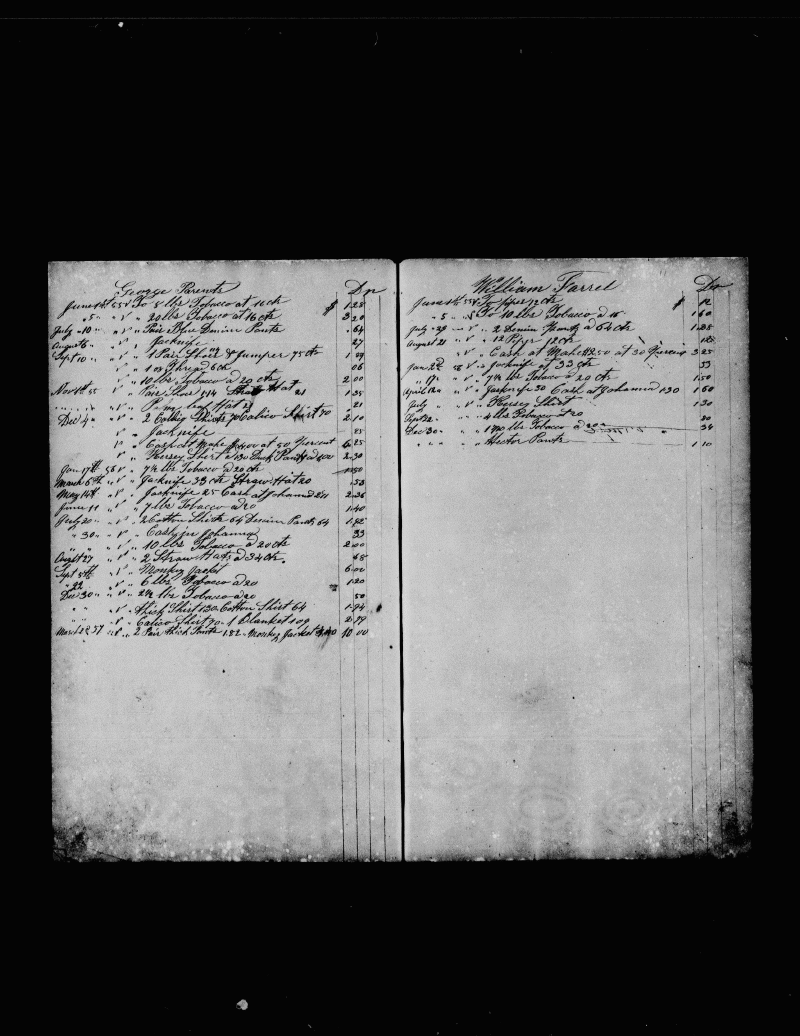 George Parents Dr
June 1st 55 V To 8 lbs Tobacco at 16 cts $ 1.28
" 5 " " V " 20 lbs Tobacco at 16 cts 3 20
July 10 " " V " Pair Blue Denim Pants .64
August 6 " " V " Jacknife 27
Sept 10 " " V " 1 Pair Shoes & Jumper 75 cts 1 99
" V " 1 oz Thread 6 cts 06
" V " 10 lbs Tobacco a 20 cts 2 00
Nov 1st 55 " V " Pair Shoes 114 Hat 21 1.35
" V " Hat 21
Dec 4 " " V " 2 Shirts Calico Shirt 70 2 10
" V " Jacknife 25
" V " Cash at Mahe at 50 Percent 6 25
" V " Kersey Shirt a 130 Duck Pants a 100 2.30
Jan 17th 56 V " 7½ lbs Tobacco a 20 cts 1.50
March 6th " V " Jacknife 33 cts Straw Hat 20 .53
May 14th " V " Jacknife 25 Cash at Johanna 2 36
June 11 " V " 7 lbs Tobacco a 20 1.40
July 20 " " V " 2 Cotton Shirts 64 Denim Pants 64 1.92
" 30 " " V " Johanna 33
" V " 10 lbs Tobacco a 20 cts 2 00
August 27 " V " 2 Straw Hats a 34 cts 68
Sept 5th " V " Monkey Jacket 6 00
" 22 " V " 6 lbs Tobacco a 20 1.20
Dec 30 " " V " 2½ lbs Tobacco a 20 50
" " V " thick Shirt 130 Cotton Shirt 64 1.94
" " V " Calico Shirt 70 - 1 Blanket 109 2 79
March 57 " V " 2 Pair thick Pants 1.82 - Monkey Jacket 10 00
William Farrel Dr
June 1st 55 V To pipes 12 cts $ 12
" 5 " To 10 lbs Tobacco a 16 1 60
July 29 " V " 2 Denim Pants a 64 cts 1.28
August 21 " V " 12 Pipes 12 cts
" V " Cash at Mahe $2.50 at 30 Percent 3 25
Jan 22d 56 V " Jacknife at 33 cts 33
" 17 " V " 7½ lbs Tobacco a 20 cts 1.50
April 12 " V " Jacknife 30 Cash at Johanna 130 1 60
July " V " Kersey Shirt 1 30
Sept 22 " " " 4 lbs Tobacco a 20 80
Dec 30 " " " lbs Tobacco a 20 34
" " " " Pants 1 10